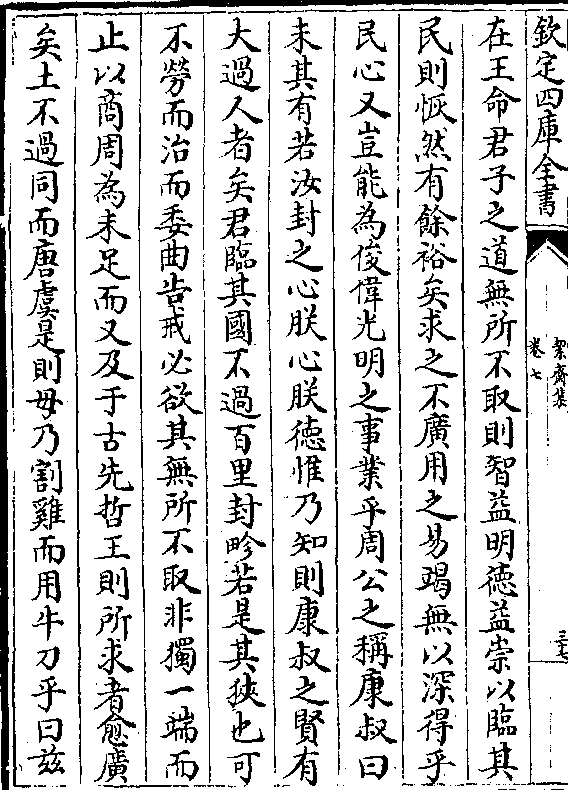 欽定四庫全書
絜齋集
卷七
三十七
在王命君子之道無所不取則智益明徳益崇以臨其
民則恢然有餘裕矣求之不廣用之易竭無以深得乎
民心又豈能為俊偉光明之事業乎周公之稱康叔曰
未其有若汝封之心朕心朕徳惟乃知則康叔之賢有
大過人者矣君臨其國不過百里封畛若是其狹也可
不勞而治而委曲告戒必欲其無所不取非獨一端而
止以商周為未足而又及于古先哲王則所求者愈廣
矣土不過同而唐虞是則毋乃割雞而用牛刀乎曰兹